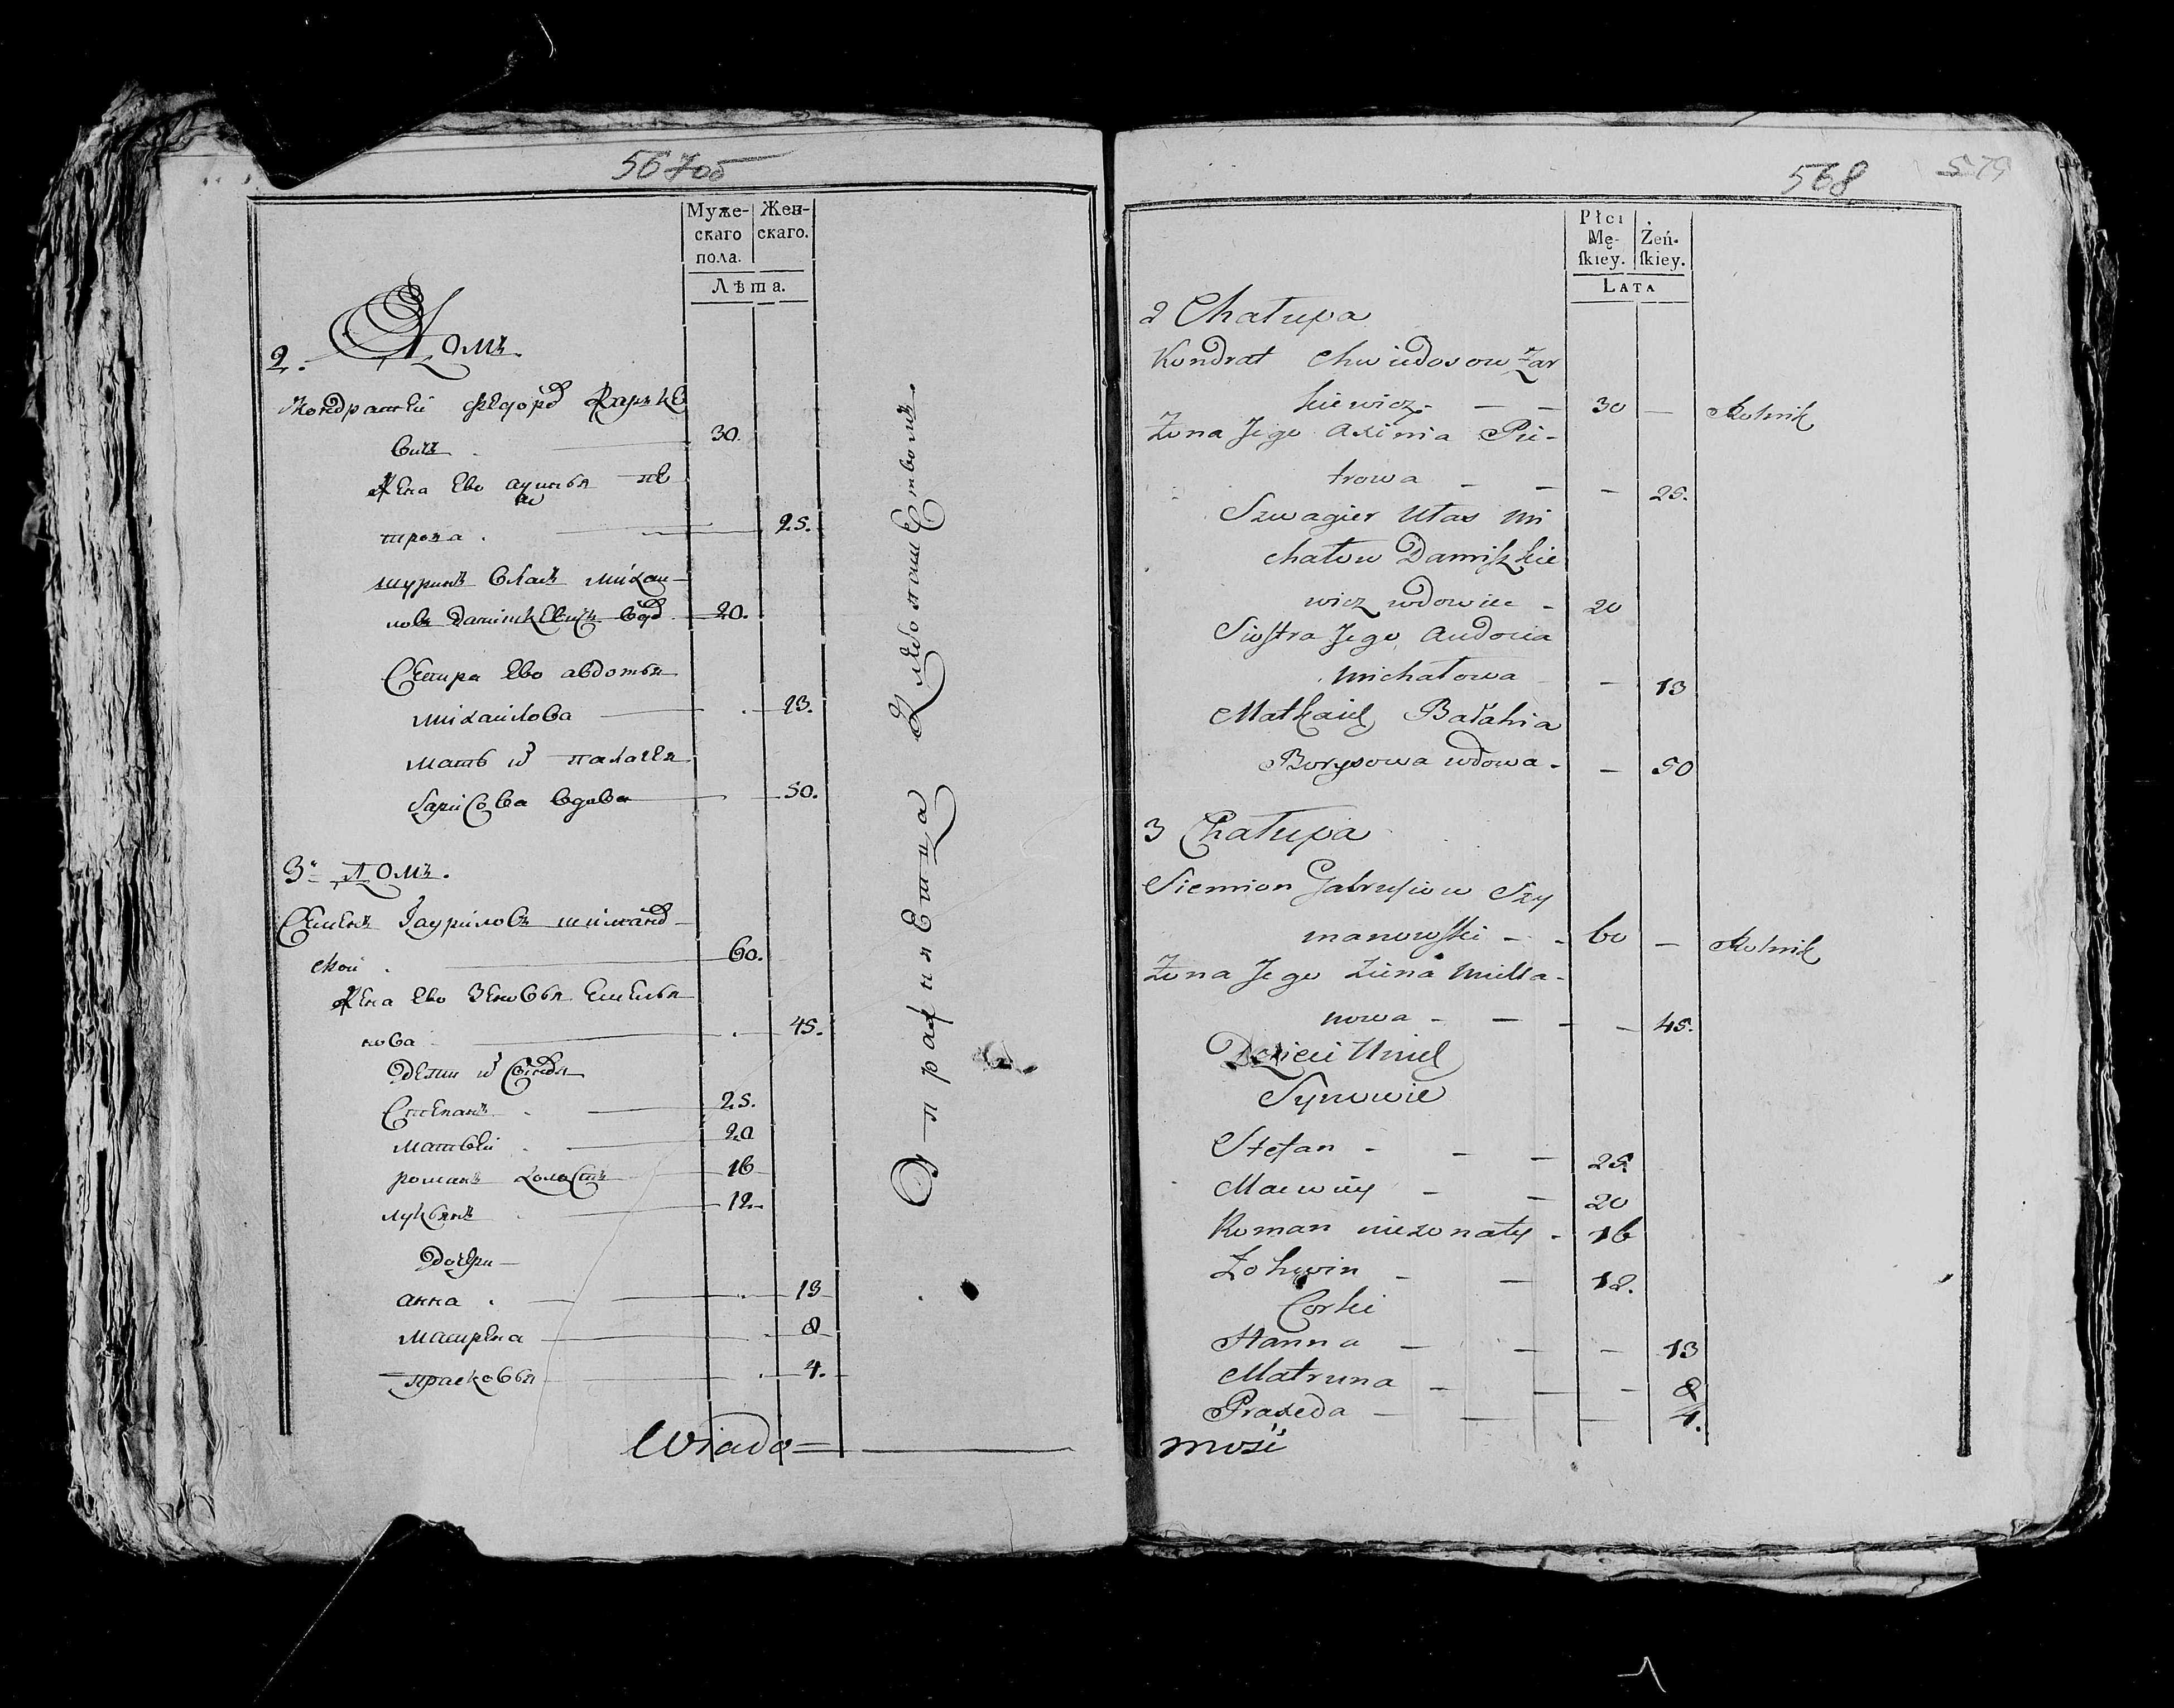 567об
Муже-
скаго
пола.
Жен-
скаго.
Лѣта.
2. Домъ
Кондратей Федоров Жарке
вичъ 30.
Жена Ево
трова 25.
шуринъ Власъ михаи
ловъ Данишкевичъ вдов 20.
Сестра Ево авдотья
михайлова 23.
мать их палагея
Барисова вдова 50.
3й домъ.
Семенъ Гауриловъ шиманов
ской 60.
Жена Ево Зеновья Емелья
нова 45.
дети их Сыновья
Степанъ 25.
матвей 20
романъ холостъ 16
лукьянъ 12.
дочери
анна 13
матрена 8
прасковья 4.
Wiado=
Упражняетца Хлебопашетволъ.
568
579
Płci
Mę-
ſkiey.
Żeń-
ſkiey.
LATA
2 Chałupa
Kondrat Chwiedosow Żar
kiewicz - - - 30 - Rolnik
Żona Jego Axinia Pie-
trowa - - - 25.
Szwagier Ułas Mi
chałow Daniszkie
wicz wdowiec - 20
Siostra Jego Audocia
Michałowa - 13
Matka ich Połahia
Borysowa wdowa - - 50
3 Chałupa
Siemion Gabrusiow Szy
manowski - - 60 - Rolnik
Żona Jego Zina Milla-
nowa - - - - 45.
Dzieci Uniel
Synowie
Stefan - - - 25.
Macwiey - - 20
Roman nieżonaty - 16
- - 12.
Corki
Hanna - - - 13
Matruna - - - 8
Praxeda - - - 4.
mość